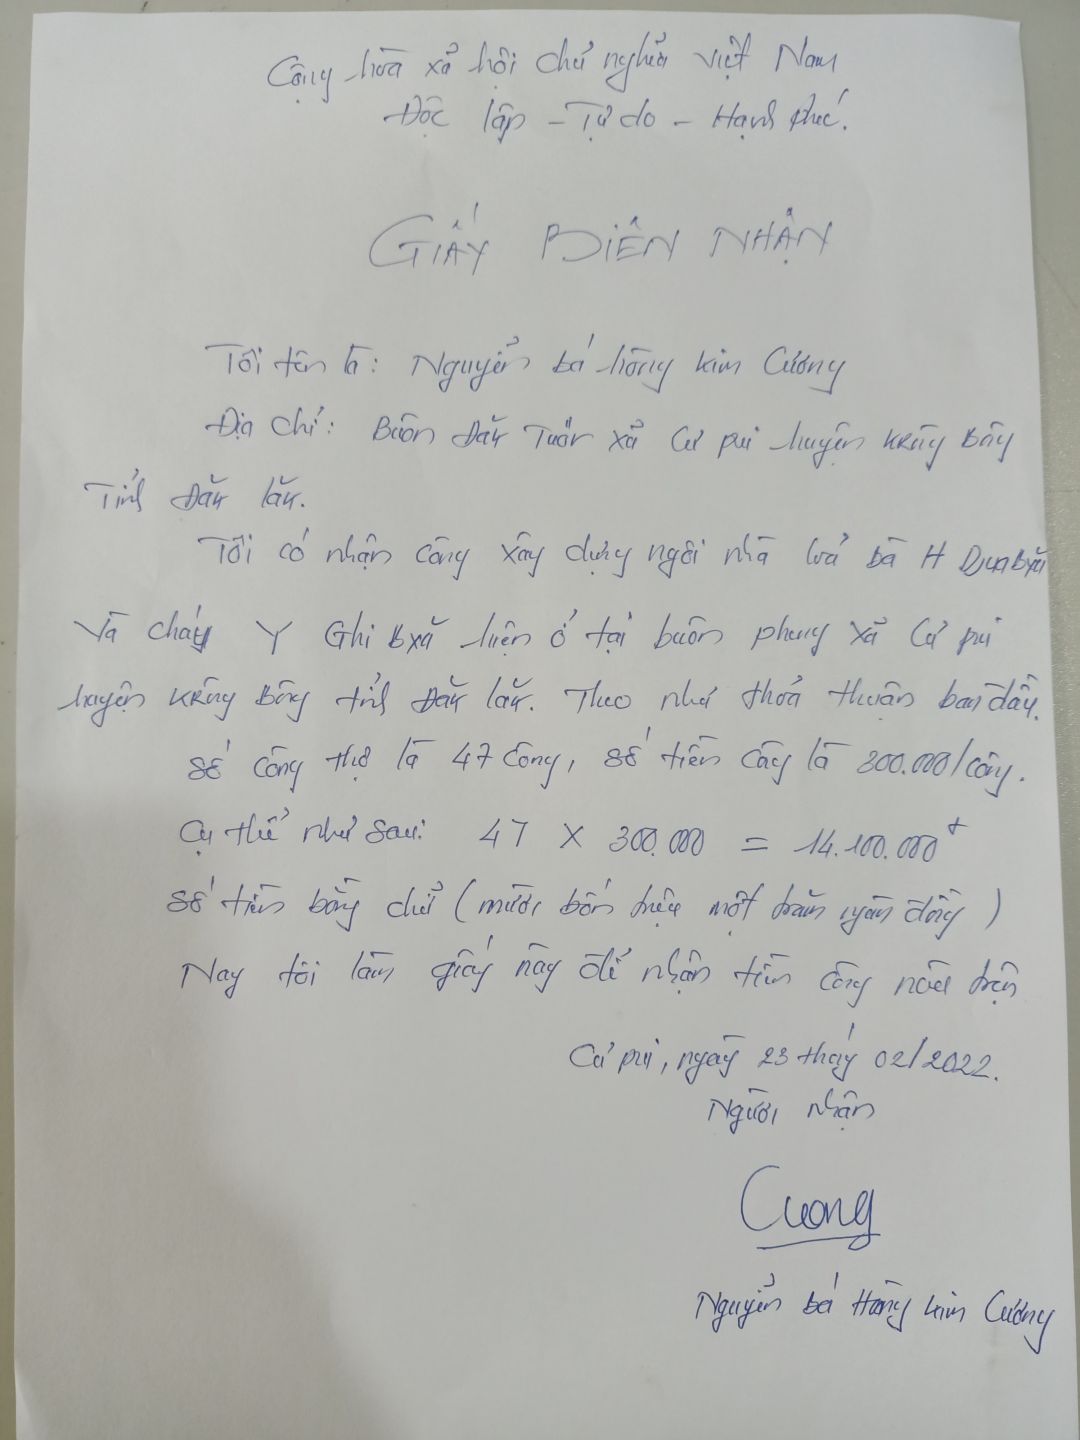 Cộng hòa xã hội chủ nghĩa việt Nam
Độc lập - Tự do - Hạnh phúc.
GIẤY BIÊN NHẬN
Tôi tên là: Nguyễn bá hồng kim Cương
Địa chỉ: Buôn Đăk Tuôr xã Cư pui huyện Krông Bông
Tỉnh Đăk lăk.
Tôi có nhận công xây dựng ngôi nhà của bà H Djuabyă
Và cháu Y Ghi Byă hiện ở tại buôn phung xã Cư pui
huyện Krông Bông tỉnh Đăk lăk. Theo như thoả thuận ban đầu.
Số công thợ là 47 công, số tiền công là 300.000/công.
Cụ thể như sau: 47 x 300.000 = 14.100.000đ
số tiền bằng chữ (mười bốn triệu một trăm ngàn đồng)
Nay tôi làm giấy này để nhận tiền công nêu trên
Cư pui, ngày 23 tháng 02/2022.
Người nhận
Cương
Nguyễn bá Hồng kim Cương